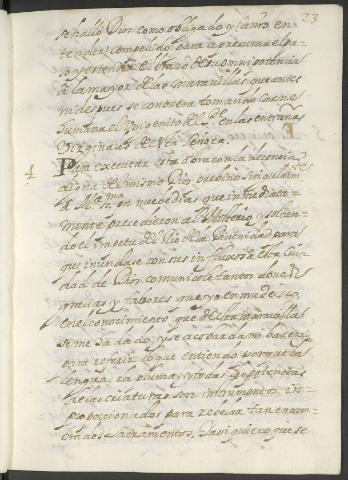 23
se hallò Dios como obligado y (à nro en-
tender) compelido para apresurar el pa-
so, y estender el brazo de su omnipotencia
à la mayor de las maravillas, que antes
ni despues se conocera tomando carne
humana el Unigenito del Pe. en las entrañas
Virginales de esta Señora.
4 Para executar esta obra con la decencia
digna del mismo Dios previno singularmte
à Ma. SSma. por nuebe dias, que inmediata-
mente precedieron al Mysterio, y soltan-
do el impetu del Rio de la Divinidad para
que inundase con sus influxos a esta Ciu-
dad de Dios, comunicole tantos dones,
gracias y fabores, que yo enmudesco
en el conocimiento que de esta maravilla
se me ha dado, y se acobarda mi baxeza
para referir lo que entiendo, porque la
lengua, la pluma, y todas las potencias
de las criaturas son instrumentos im-
proporcionados para revelar tan encum-
brados Sacramentos. Y assi quiero que se